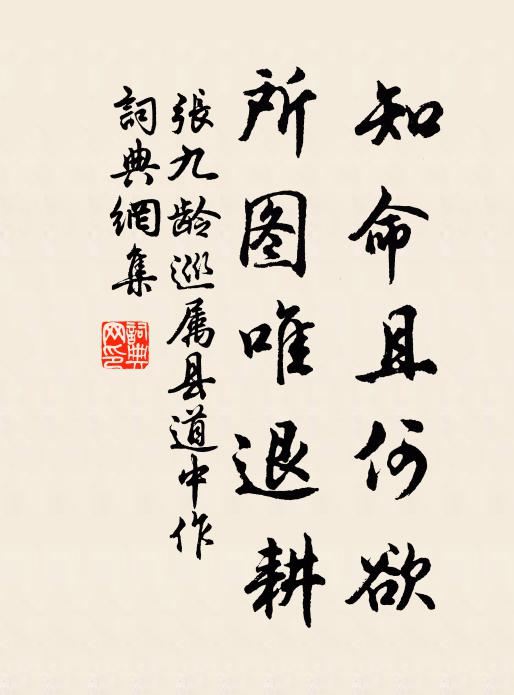 知命且何欲
所图唯退耕
張九龄巡属县道中作
詞典網集
詞典网印